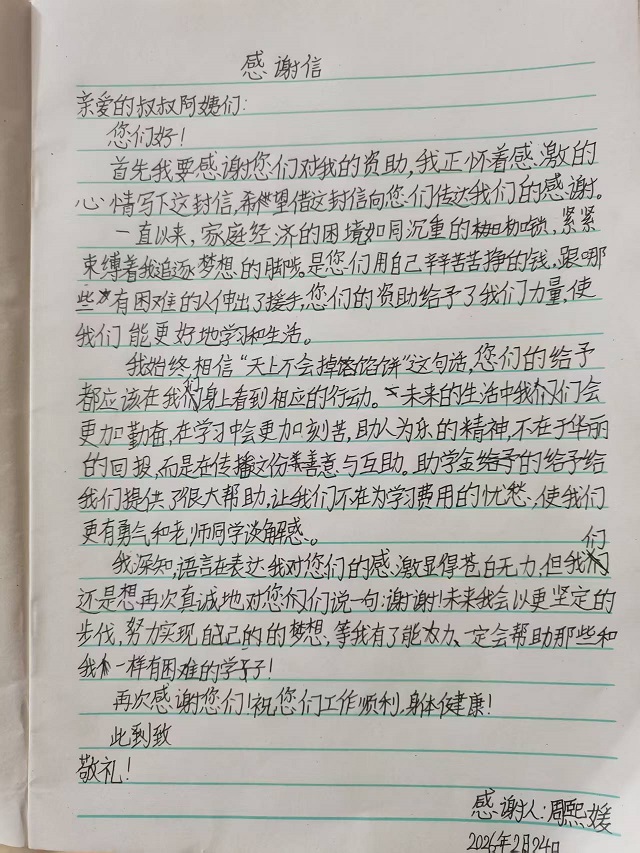 感谢信
亲爱的叔叔阿姨们:
您们好!
首先我要感谢您们对我的资助,我正怀着感激的
心情写下这封信,希望借这封信向您们传达我们的感谢。
一直以来,家庭经济的困境如同沉重的枷锁,紧紧
束缚着我追逐梦想的脚步。是您们用自己辛辛苦苦挣的钱,跟哪
些有困难的人伸出了援手,您们的资助给予了我们力量,使
我们能更好地学习和生活。
我始终相信“天上不会掉馅饼”这句话,您们的给予
都应该在我们身上看到相应的行动。未来的生活中我们会
更加勤奋,在学习中会更加刻苦,助人为乐的精神,不在于华丽
的回报,而是在传播这份善意与互助。助学金的给予给
我们提供了很大帮助,让我们不在为学习费用的忧愁、使我们
更有勇气和老师同学谈解惑。
我深知,语言在表达我对您们的感激显得苍白无力,但我们
还是想再次真诚地对您们说一句:谢谢!未来我会以更坚定的
步伐,努力实现自己的的梦想,等我有了能力、一定会帮助那些和
我一样有困难的学子!
再次感谢您们!祝您们工作顺利,身体健康!
此到致
敬礼!
感谢人:周熙媛
2026年2月24日